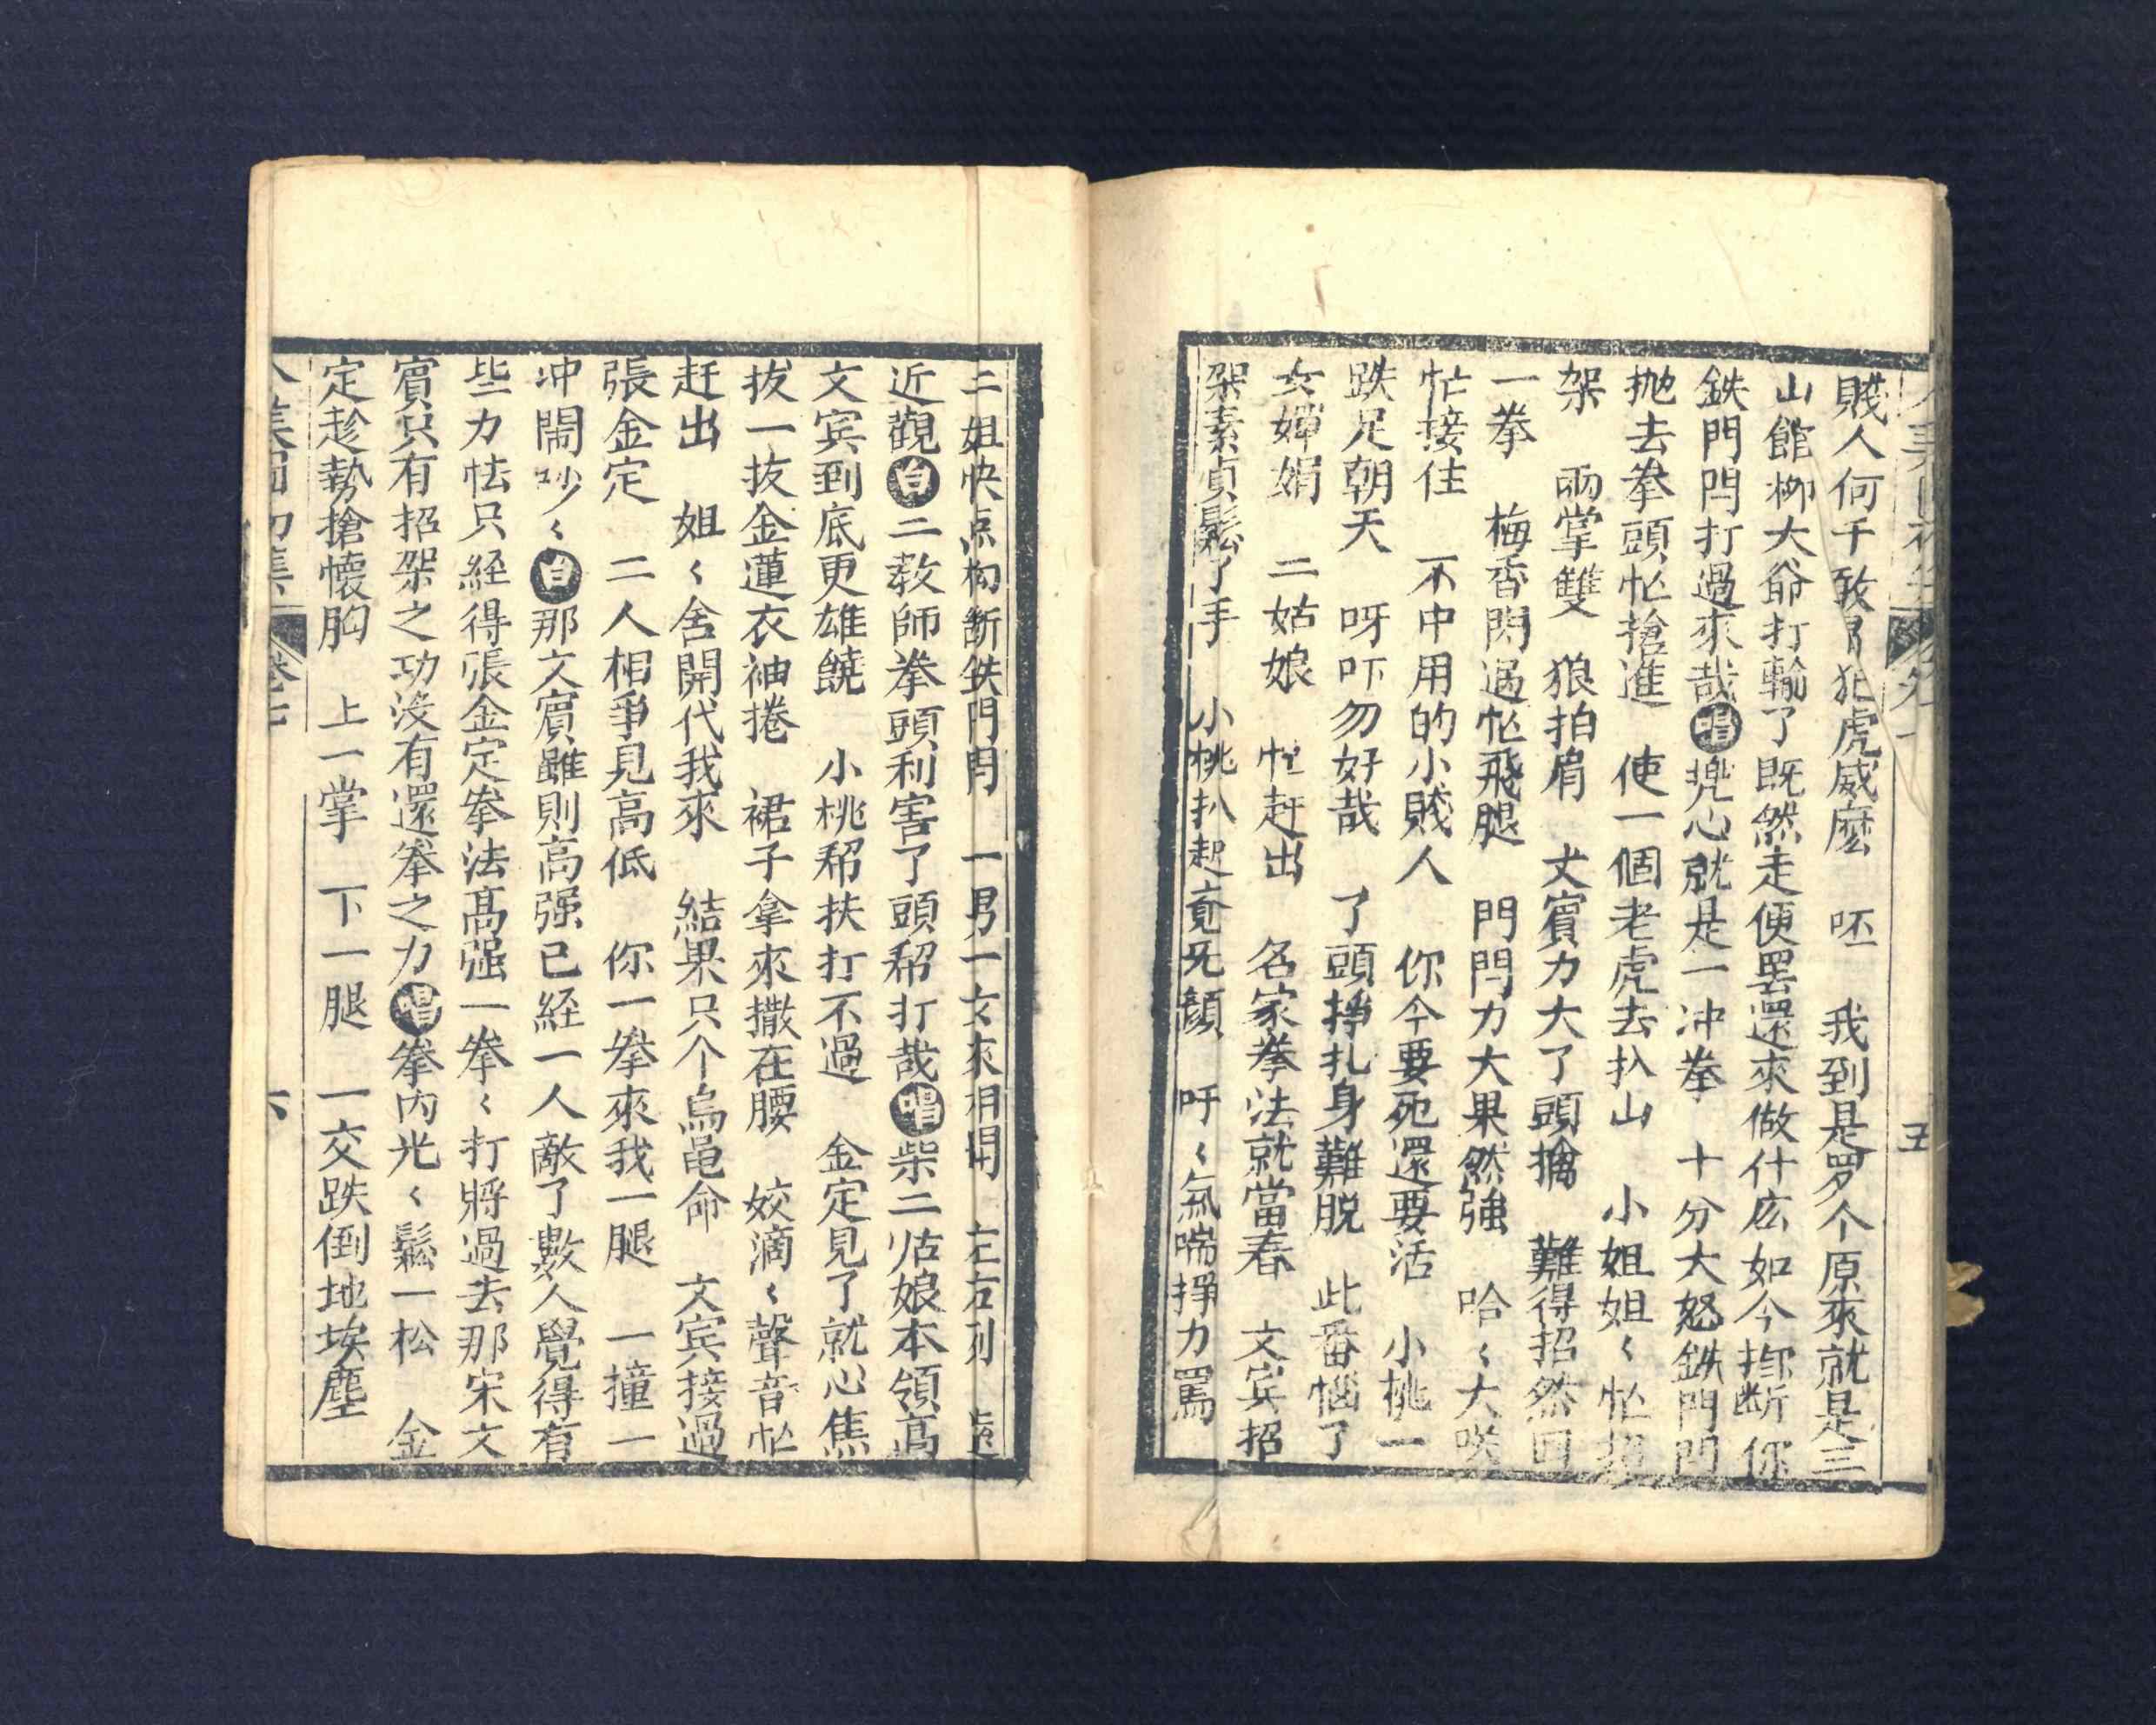 賤人何干致冒犯虎威麽　呸　我到是罗个原來就是三
山館柳大爺打輸了既然走便罢還來做什庅如今擰断你
鉄門閂打過來哉唱兜心就是一冲拳　十分大怒鉄門閂
抛去拳頭忙搶進　使一個老虎去扒山　小姐姐〻忙招
架　兩掌雙　狼拍肩　文賓力大了頭擒　難得招然回
一拳　梅香閃過忙飛腿　門閂力大果然強　哈〻大咲
忙接住　不中用的小賤人　你今要死還要活　小桃一
跌足朝天　呀吓勿好哉　了頭掙扎身難脱　此番惱了
女嬋娟　二姑娘　忙赶出　名家拳法就當春　文宾招
架素貞鬆了手　小桃扒起竟旡顔　吁〻氣喘掙力罵
五
二姐快点拘断鉄門閂　一男一女來相開　左右列　遠
近觀白二教師拳頭利害了頭帮打哉唱柴二姑娘本領高
文宾到底更雄饒　小桃帮扶打不過　金定見了就心焦
拔一拔金蓮衣袖捲　裙子拿來撒在腰　姣滴〻聲音忙
赶出　姐〻舍開代我來　結果只个烏龟命　文宾接過
張金定　二人相爭見高低　你一拳來我一腿　一撞一
冲鬧吵〻白那文賓雖則高强已経一人敵了數人覺得有
些力怯只経得張金定拳法高强一拳〻打將過去那宋文
賓只有招架之功没有還拳之力唱拳内光〻鬆一松　金
定趁勢搶懐胸　上一掌　下一腿　一交跌倒地埃塵
卷七　六